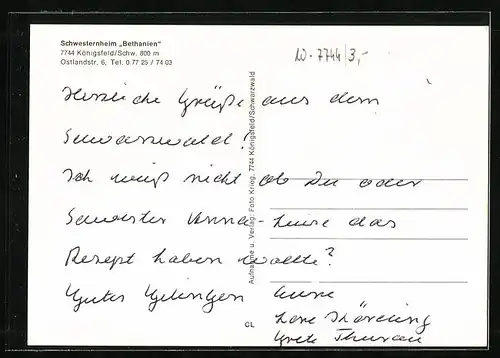 Schwesternheim „Bethanien“
7744 Königsfeld/Schw. 800 m
Ostlandstr. 6, Tel. 0 77 25 / 74 03
W-7744/3,-
Herzliche Grüße aus dem
Schwarzwald!
Ich weiß nicht ob Du oder
Schwester Anna-Luise das
Rezept haben wollte?
Gutes Gelingen Eure
Lore
Grete
Aufnahme u. Verlag: Foto Krieg, 7744 Königsfeld/Schwarzwald
CL